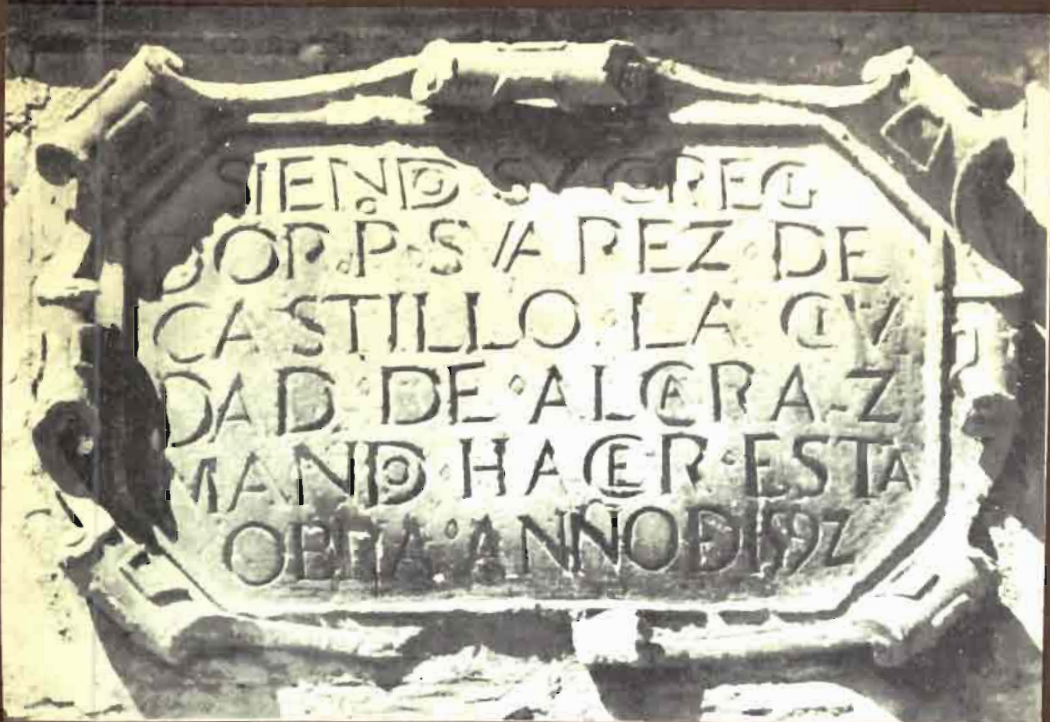 SIENDO SV COREGI
DOR P SVAREZ DE
CASTILLO LA CIV
DAD DE ALCARAZ
MANDO HACER ESTA
OBRA AÑNO D 1592